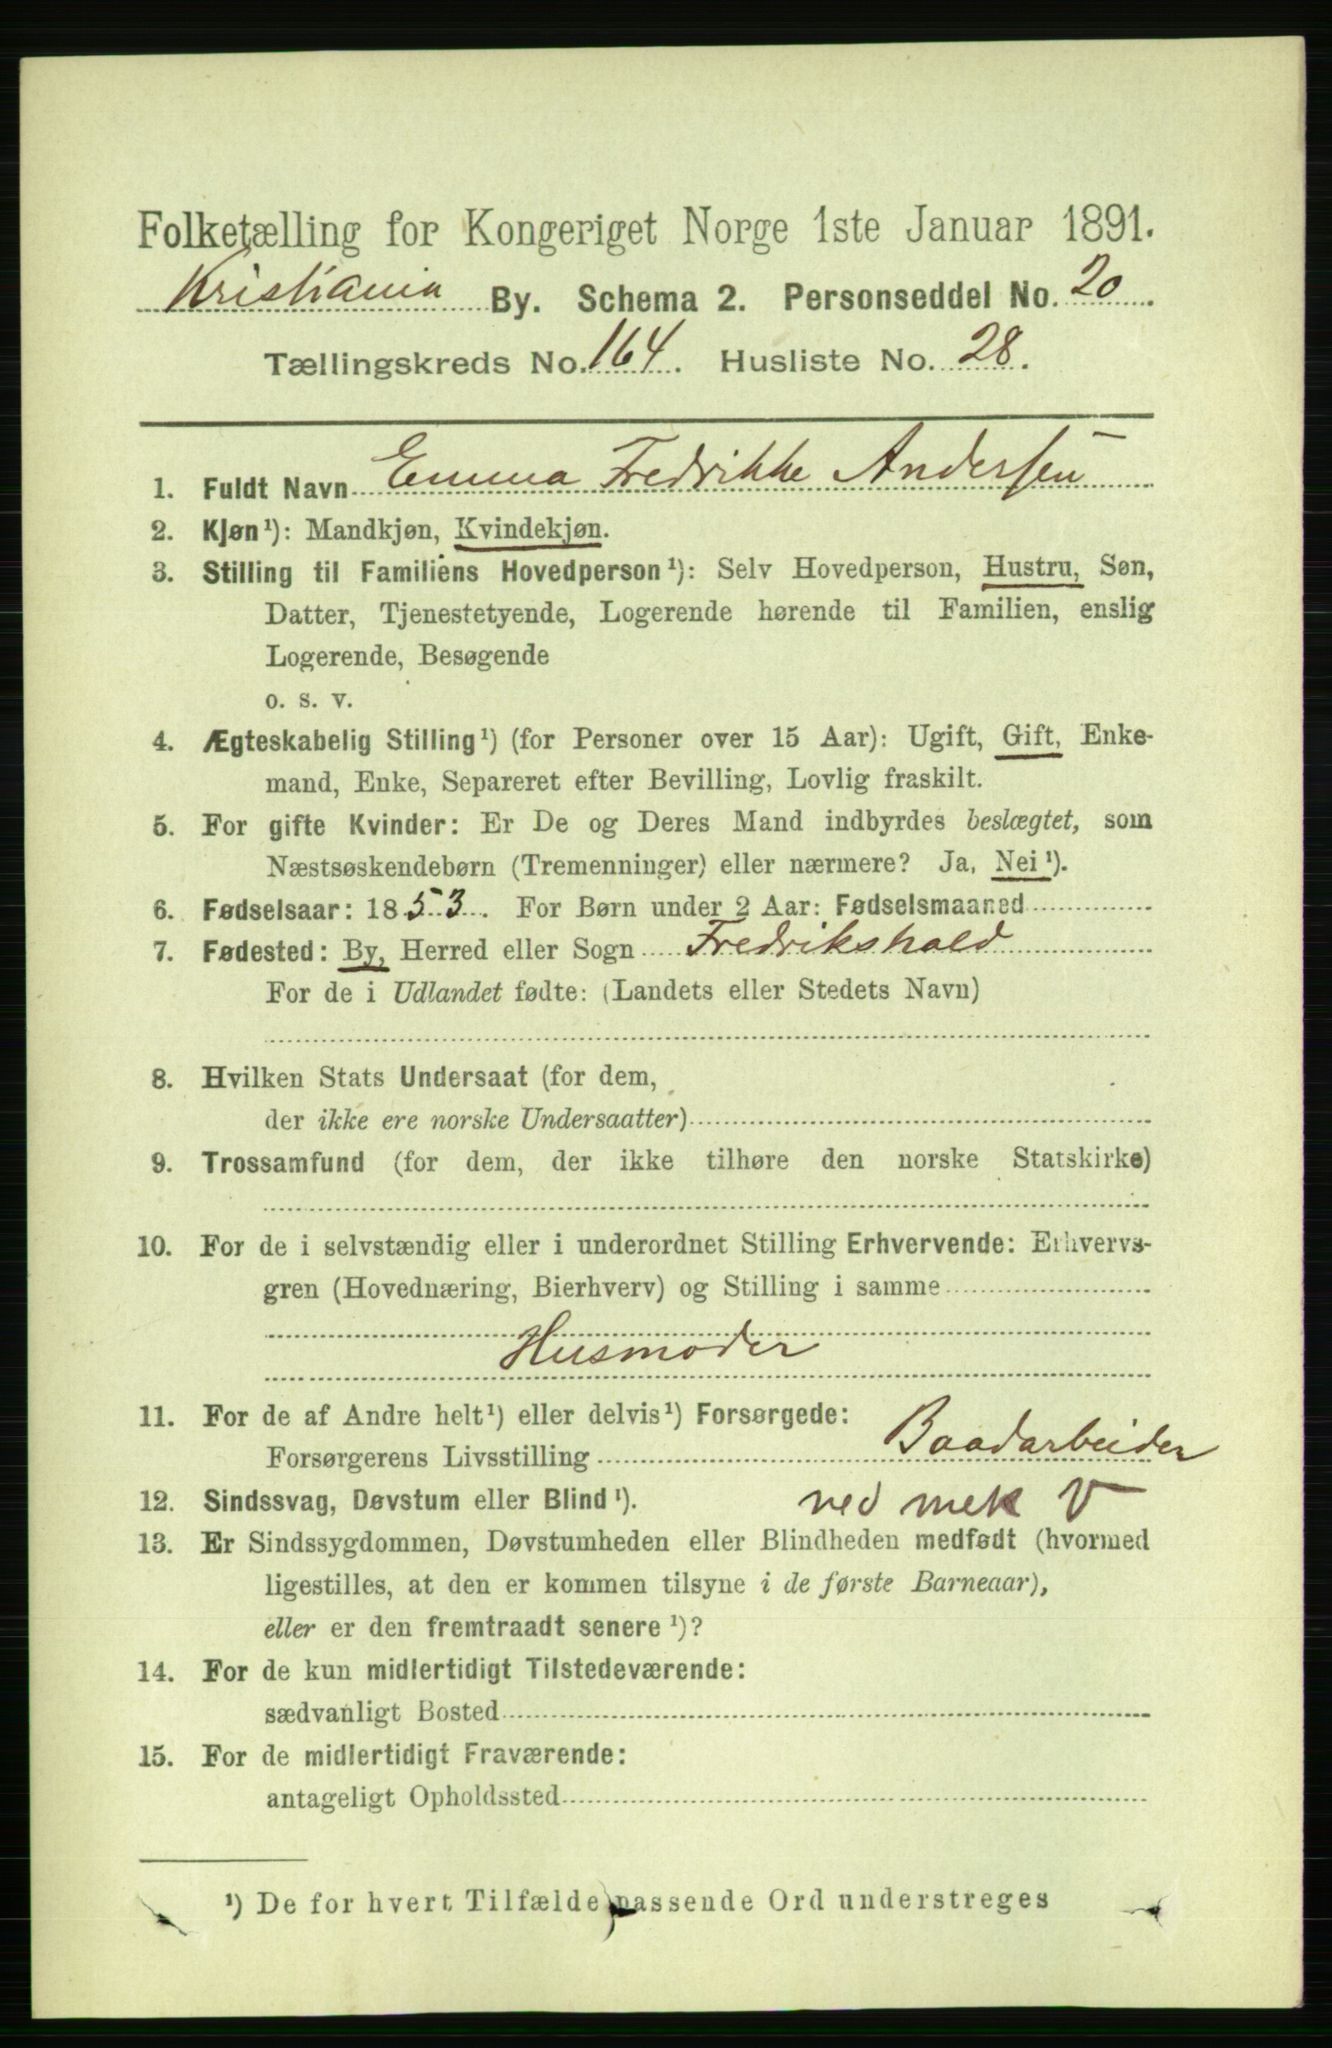 Folketælling for Kongeriget Norge 1ste Januar 1891.
Kristiania By. Schema 2. Personseddel No. 20.
Tællingskreds No. 164. Husliste No. 28.
1. Fuldt Navn Emma Fredrikke Andersen
2. Kjøn¹): Mandkjøn, Kvindekjøn.
3. Stilling til Familiens Hovedperson¹): Selv Hovedperson, Hustru, Søn,
Datter, Tjenestetyende, Logerende hørende til Familien, enslig
Logerende, Besøgende
o. s. v.
4. Ægteskabelig Stilling¹) (for Personer over 15 Aar): Ugift, Gift, Enke-
mand, Enke, Separeret efter Bevilling, Lovlig fraskilt.
5. For gifte Kvinder: Er De og Deres Mand indbyrdes beslægtet, som
Næstsøskendebørn (Tremenninger) eller nærmere? Ja, Nei¹).
6. Fødselsaar: 1853. For Børn under 2 Aar: Fødselsmaaned
7. Fødested: By, Herred eller Sogn Fredrikshald
For de i Udlandet fødte: (Landets eller Stedets Navn)
8. Hvilken Stats Undersaat (for dem,
der ikke ere norske Undersaatter)
9. Trossamfund (for dem, der ikke tilhøre den norske Statskirke)
10. For de i selvstændig eller i underordnet Stilling Erhvervende: Erhvervs-
gren (Hovednæring, Bierhverv) og Stilling i samme
Husmoder
11. For de af Andre helt¹) eller delvis¹) Forsørgede:
Forsørgerens Livsstilling Baadarbeider
12. Sindssvag, Døvstum eller Blind¹). ved mek V
13. Er Sindssygdommen, Døvstumheden eller Blindheden medfødt (hvormed
ligestilles, at den er kommen tilsyne i de første Barneaar),
eller er den fremtraadt senere¹)?
14. For de kun midlertidigt Tilstedeværende:
sædvanligt Bosted
15. For de midlertidigt Fraværende:
antageligt Opholdssted
¹) De for hvert Tilfælde passende Ord understreges